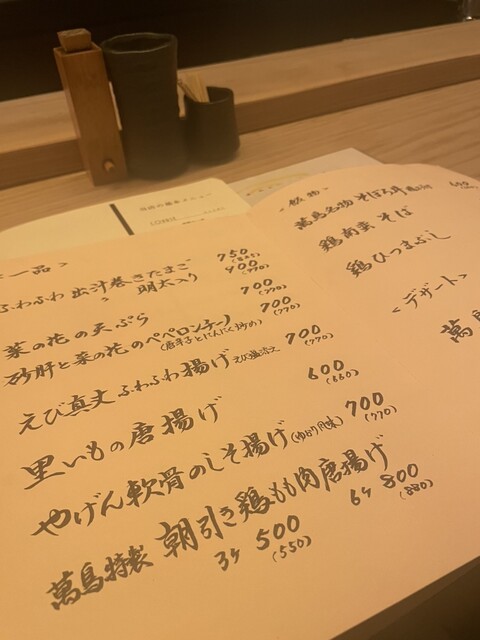 一品>
ふわふわ 出汁巻きたまご 750
〃 明太入り 900 (990)
菜の花の天ぷら 700 (770)
砂肝と菜の花のペペロンチーノ 700 (770)
(唐辛子とにんにく炒め)
えび真丈ふわふわ揚げ 700 (770)
里いもの唐揚げ 600 (660)
やげん軟骨のしそ揚げ(ゆかり風味) 700 (770)
萬鳥特製 朝引き鶏もも肉唐揚げ
3ヶ 500 (550) 6ヶ 800 (880)
<飯物>
萬鳥名物 そぼろ丼
鶏南蛮そば
鶏ひつまぶし
<デザート>
萬鳥